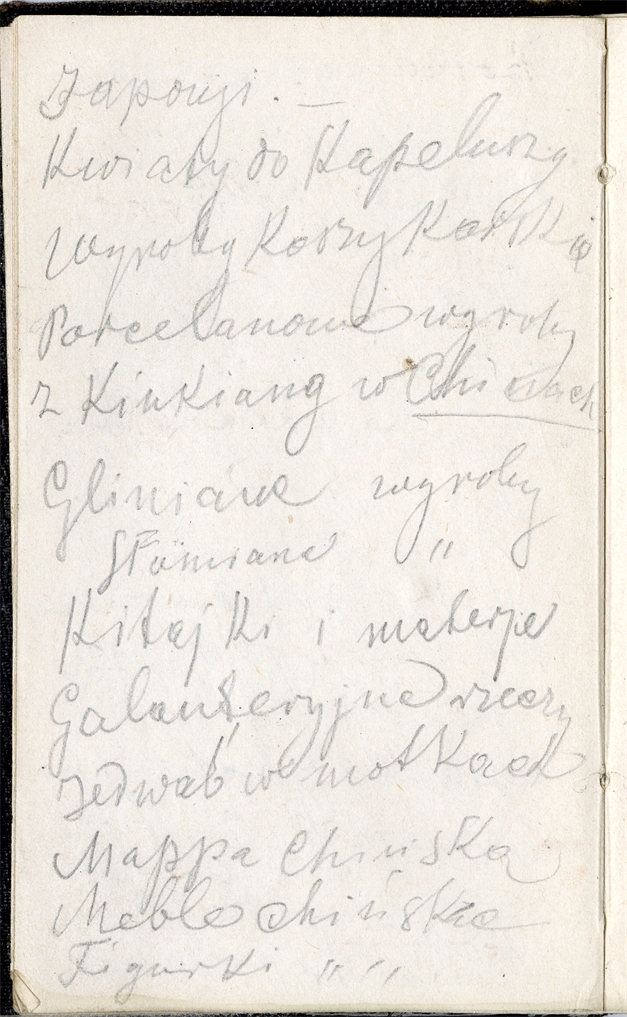 Japonji. —
Kwiaty do Kapeluszy
wyroby Koszykarskie
Porcelanowe wyroby
z Kiukiang w Chinach
Gliniane wyroby
Słomiane "
Kitajki i materje
Galanteryjne rzeczy
Jedwab w motkach
Mappa Chińska
Meble chińskie
Figurki " "